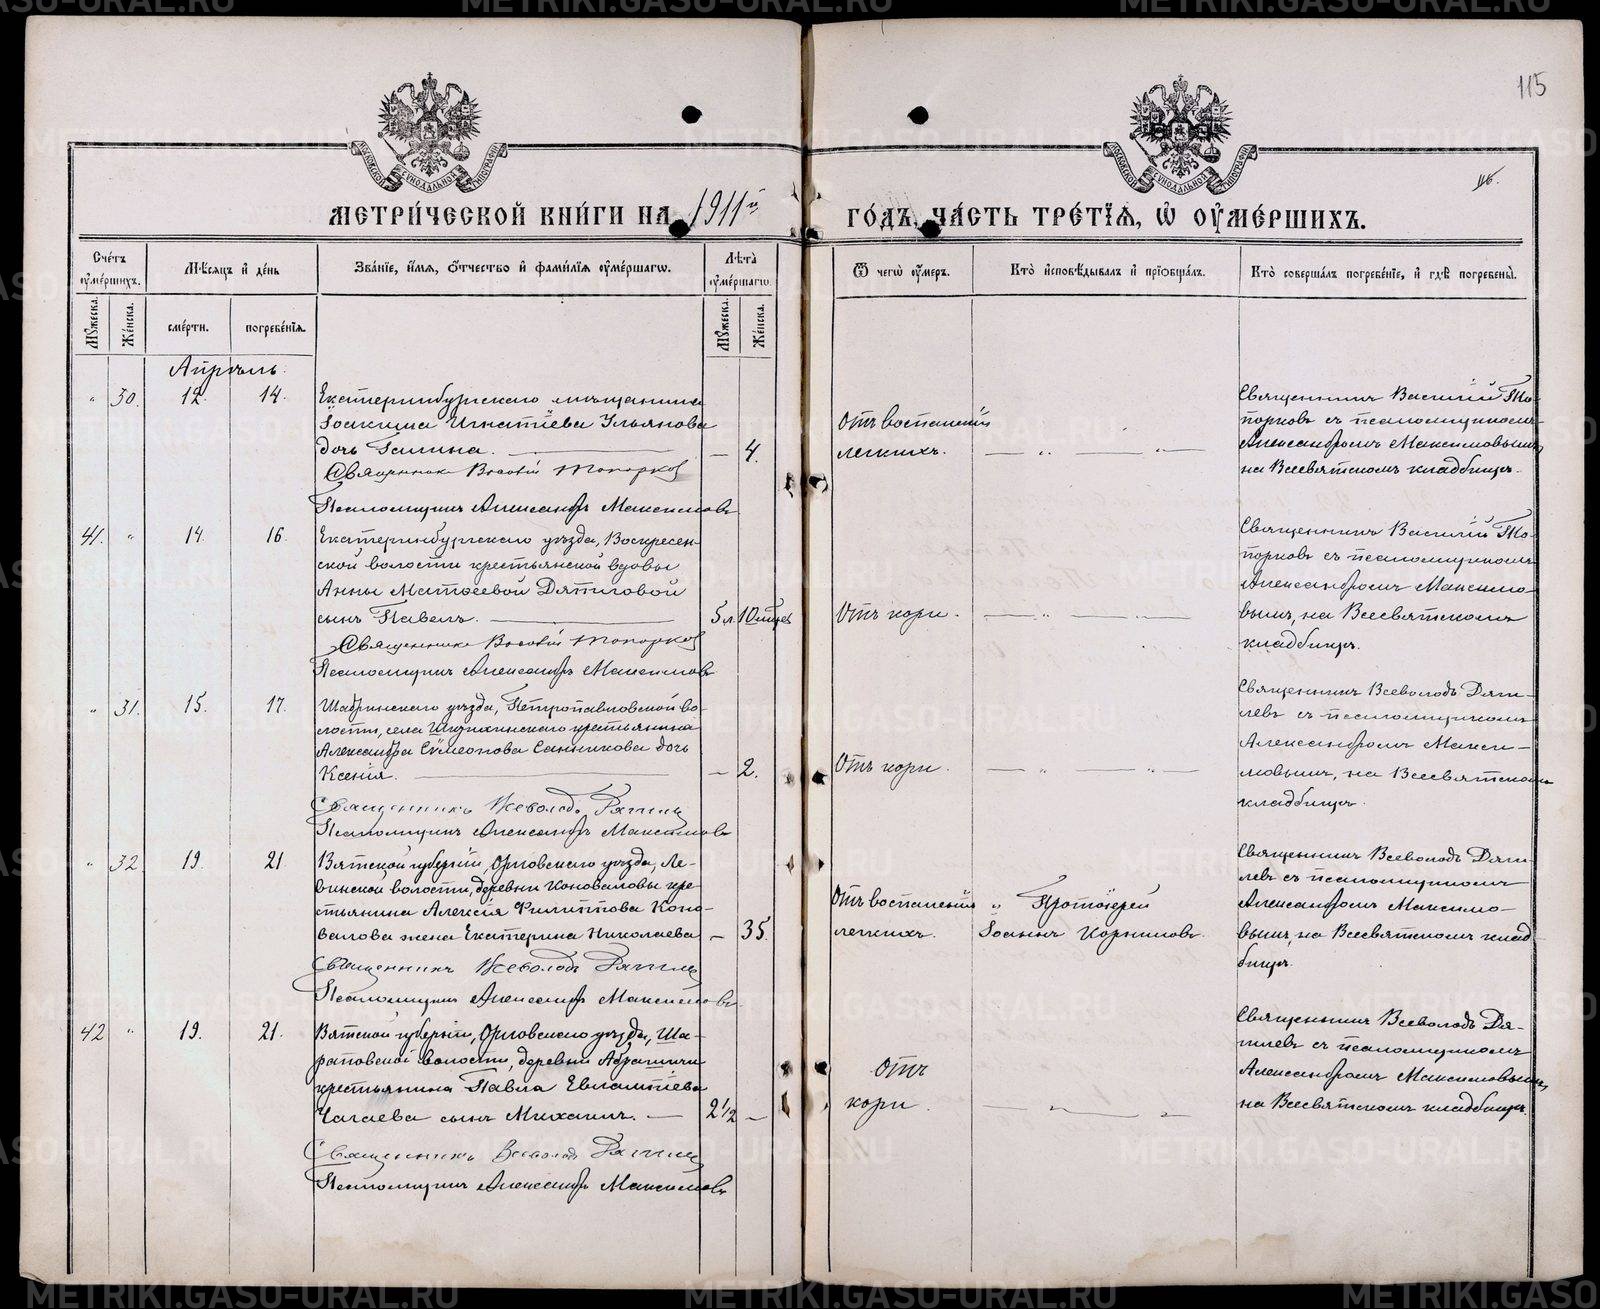 115
116.
МЕТРИ́ЧЕСКОЙ КНИ́ГИ НА 1911й
ГО́ДЪ, ЧА́СТЬ ТРЕ́ТЇѦ, Ѡ҆ ОУ҆МЕ́РШИХЪ.
МОСКОВСКОЙ СѴНОДАЛЬНОЙ ТИПОГРАФІИ
МОСКОВСКОЙ СѴНОДАЛЬНОЙ ТИПОГРАФІИ
Сче́тъ оу҆ме́ршихъ.
Мꙋ́жеска.
Же́нска.
Мѣ́сѧцъ и҆ де́нь
сме́рти.
погребе́нїѧ.
Зва́нїе, и҆́мѧ, ѻ҆́тчество и҆ фами́лїѧ оу҆ме́ршагѡ.
Лѣ́та оу҆ме́ршагѡ.
Мꙋ́жеска.
Же́нска.
Ѿ чегѡ̀ оу҆́меръ.
Кто̀ и҆сповѣ́дывалъ и҆ прїѡбща́лъ.
Кто̀ соверша́лъ погребе́нїе, и҆ гдѣ̀ погребены̀.
Апрѣль.
" 30. 12. 14.
Екатеринбургскаго мѣщанина
Іоакима Игнатіева Ульянова
дочь Галина. — 4.
Священникъ Василій Топорковъ
Псаломщикъ Александръ Максимовъ
Отъ воспаленія
легкихъ. — " — " —
Священникъ Василій То-
порковъ съ псаломщикомъ
Александромъ Максимовымъ,
на Всесвятскомъ кладбищѣ.
41. " 14. 16.
Екатеринбургскаго уѣзда, Воскресен-
ской волости крестьянской вдовы
Анны Матѳеевой Дятловой
сынъ Павелъ. 5 л. 10 мцев
Священникъ Василій Топорковъ
Псаломщикъ Александръ Максимовъ
Отъ кори. — " — " —
Священникъ Василій То-
порковъ съ псаломщикомъ
Александромъ Максимо-
вымъ, на Всесвятскомъ
кладбищѣ.
" 31. 15. 17.
Шадринскаго уѣзда, Петропавловской во-
лости, села крестьянина
Александра Сѵмеонова Санникова дочь
Ксенія. — 2.
Священникъ Всеволодъ Дягилевъ
Псаломщикъ Александръ Максимовъ
Отъ кори. — " — " —
Священникъ Всеволодъ Дяги-
левъ съ псаломщикомъ
Александромъ Макси-
мовымъ, на Всесвятскомъ
кладбищѣ.
" 32. 19. 21
Вятской губерніи, Орловскаго уѣзда, Ле-
винской волости, деревни Коноваловы кре-
стьянина Алексія Филиппова Коно-
валова жена Екатерина Николаева — 35.
Священникъ Всеволодъ Дягилевъ
Псаломщикъ Александръ Максимовъ
Отъ воспаленія
легкихъ.
" Протоіерей
Іоаннъ Корниловъ.
Священникъ Всеволодъ Дяги-
левъ съ псаломщикомъ
Александромъ Максимо-
вымъ, на Всесвятскомъ клад-
бищѣ.
42 " 19. 21.
Вятской губерніи, Орловскаго уѣзда, Ша-
раповской волости, деревни
крестьянина Павла Евлампіева
Чагаева сынъ Михаилъ. — 2 1/2 —
Священникъ Всеволодъ Дягилевъ
Псаломщикъ Александръ Максимовъ
Отъ
кори. — " — " —
Священникъ Всеволодъ Дя-
гилевъ съ псаломщикомъ
Александромъ Максимовымъ,
на Всесвятскомъ кладбищѣ.
METRIKI.GASO-URAL.RU